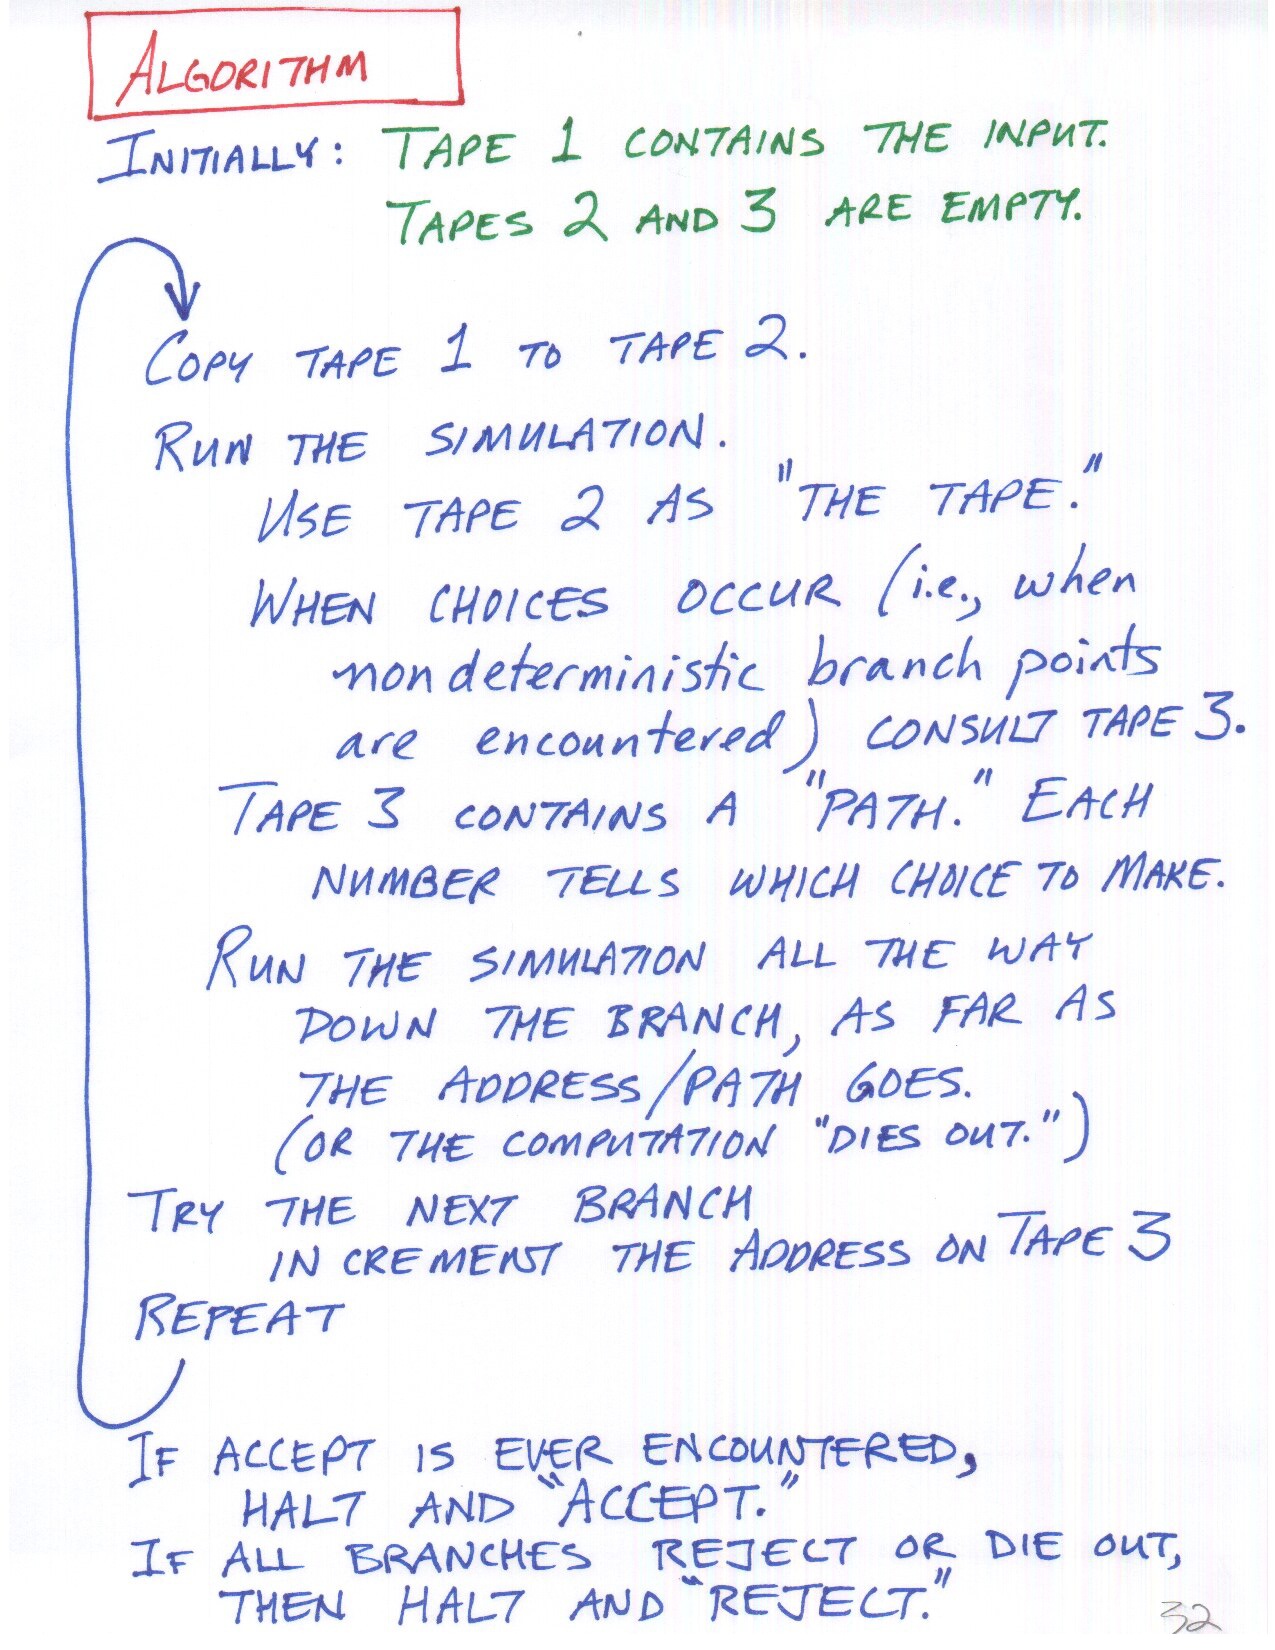 ALGORITHM
INITIALLY: TAPE 1 CONTAINS THE INPUT.
TAPES 2 AND 3 ARE EMPTY.
COPY TAPE 1 TO TAPE 2.
RUN THE SIMULATION.
USE TAPE 2 AS "THE TAPE."
WHEN CHOICES OCCUR (i.e., when
nondeterministic branch points
are encountered) CONSULT TAPE 3.
TAPE 3 CONTAINS A "PATH." EACH
NUMBER TELLS WHICH CHOICE TO MAKE.
RUN THE SIMULATION ALL THE WAY
DOWN THE BRANCH, AS FAR AS
THE ADDRESS/PATH GOES.
(OR THE COMPUTATION "DIES OUT.")
TRY THE NEXT BRANCH
INCREMENT THE ADDRESS ON TAPE 3
REPEAT
IF ACCEPT IS EVER ENCOUNTERED,
HALT AND "ACCEPT."
IF ALL BRANCHES REJECT OR DIE OUT,
THEN HALT AND "REJECT."
32